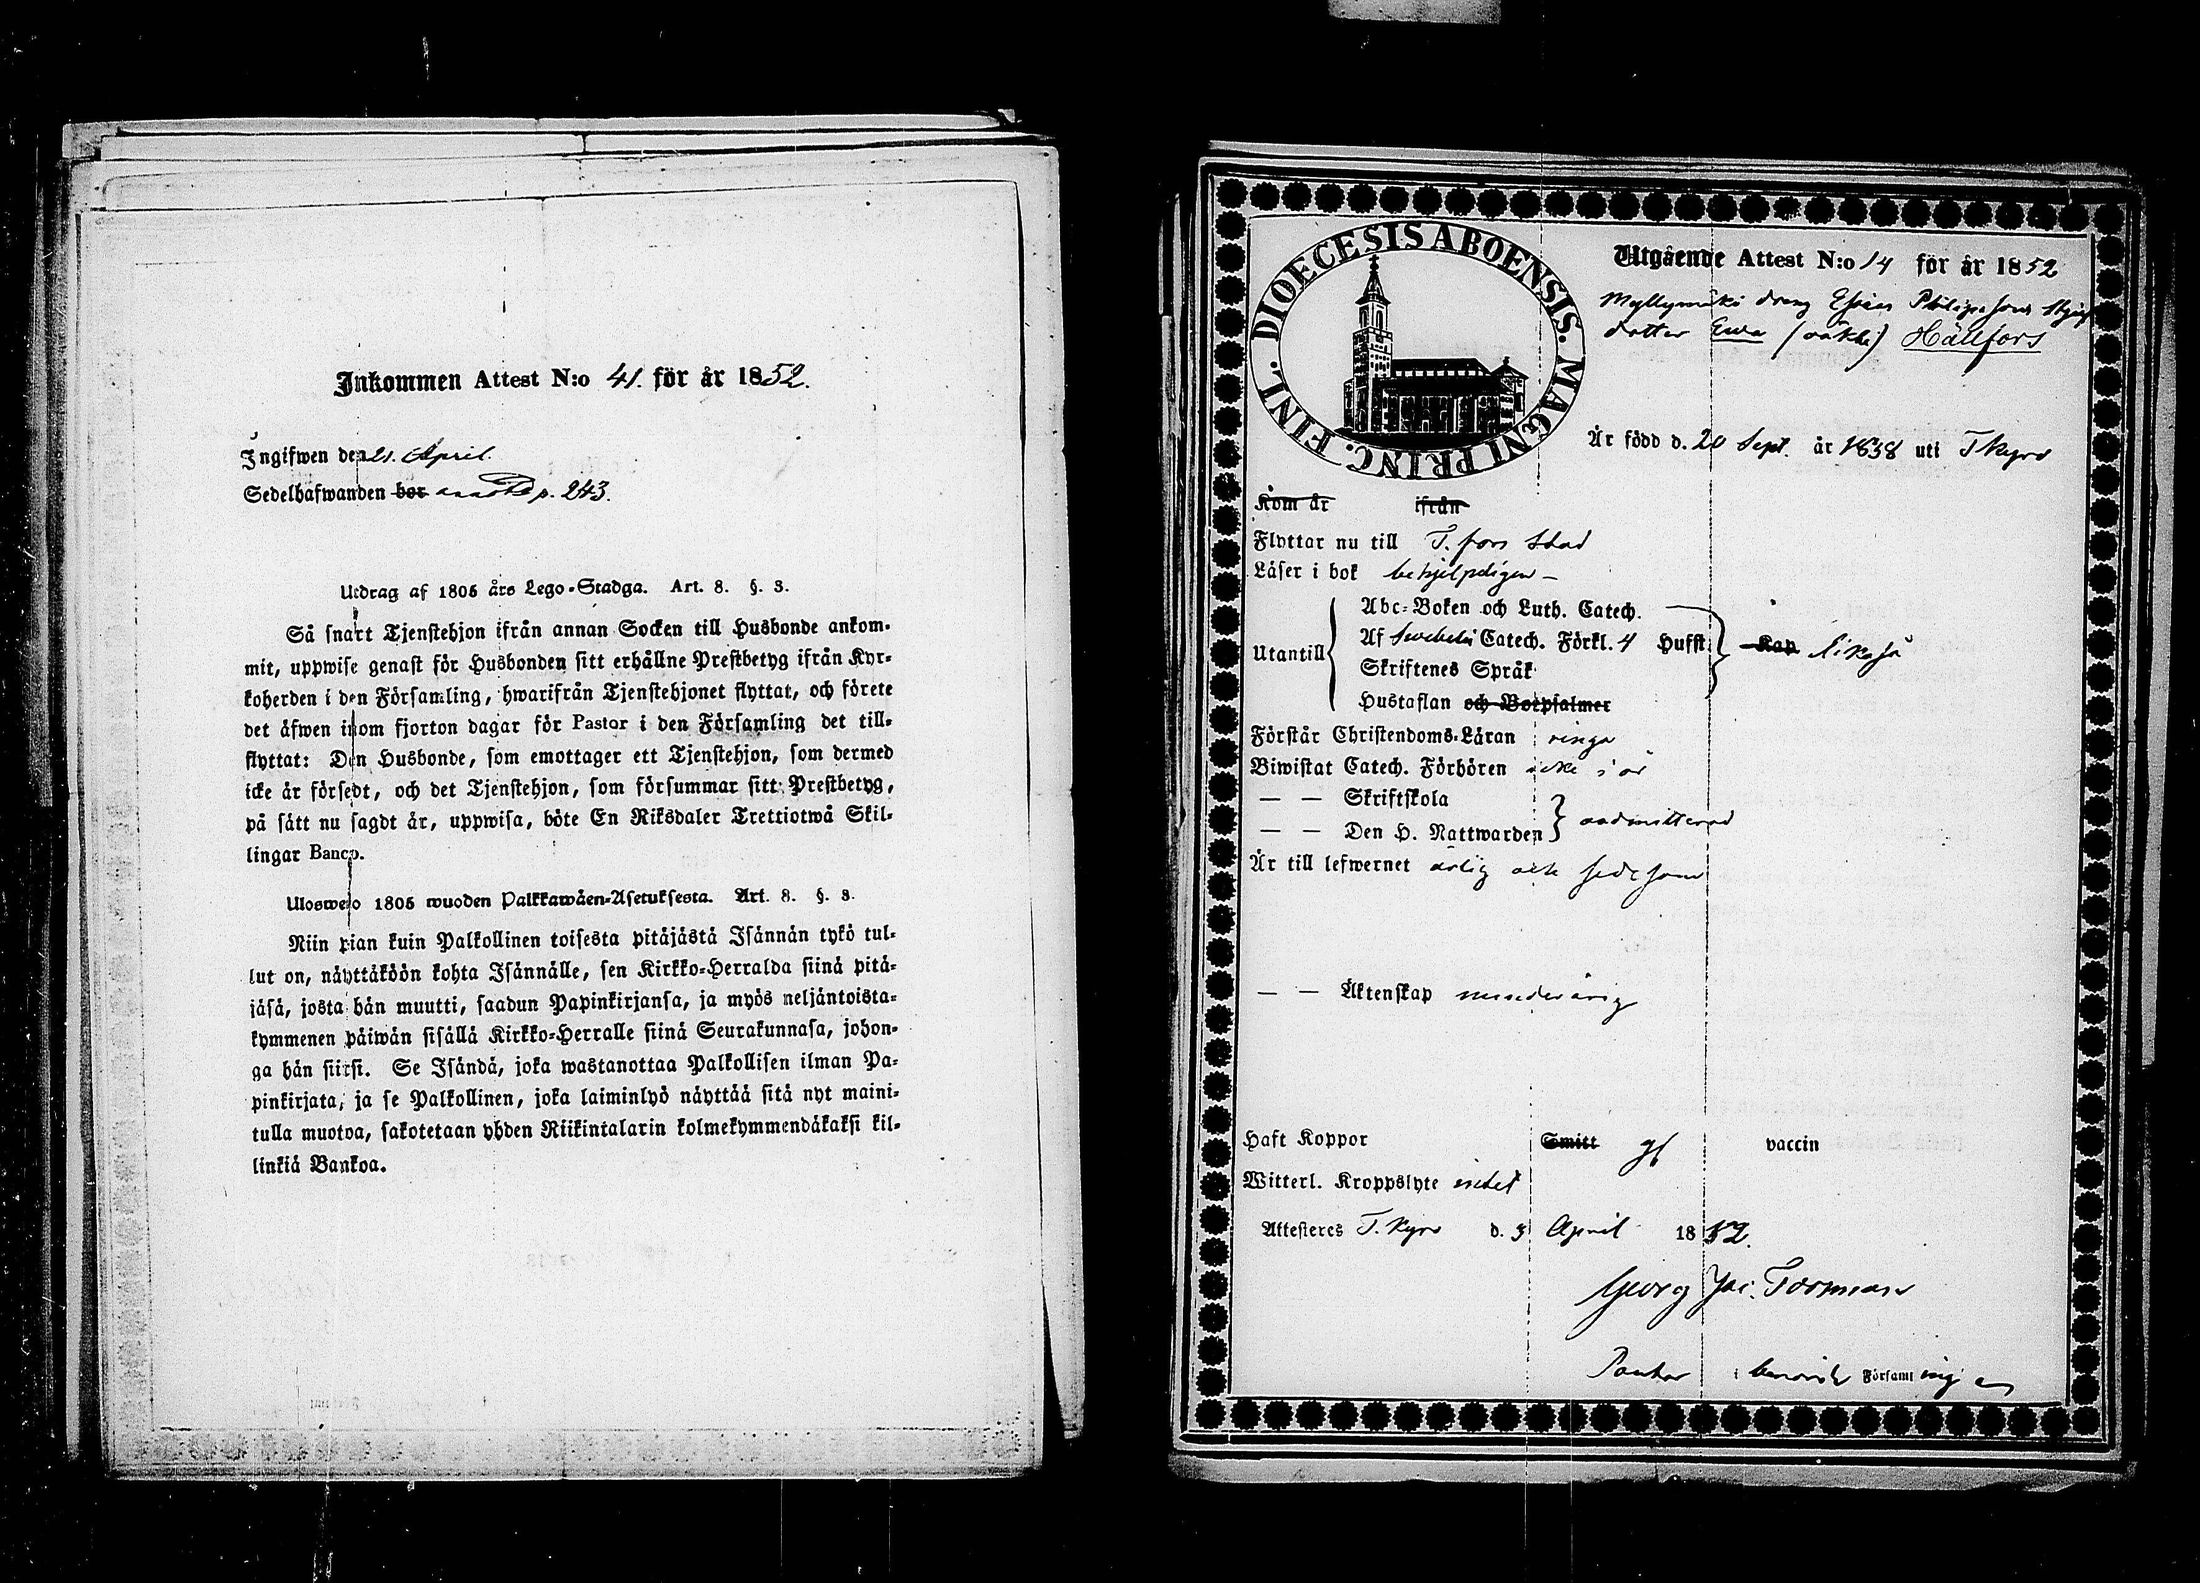 Inkommen Attest N:o 41. för år 1852.
Ingifwen den 21. April.
Sedelhafwanden bor p. 243.
Utdrag af 1805 års Lego-Stadga. Art. 8. §. 3.
Så snart Tjenstehjon ifrån annan Socken till Husbonde ankom-
mit, uppwise genast för Husbonden sitt erhållne Prestbetyg ifrån Kyr-
koherden i den Församling, hwarifrån Tjenstehjonet flyttat, och förete
det äfwen inom fjorton dagar för Pastor i den Församling det till-
flyttat: Den Husbonde, som emottager ett Tjenstehjon, som dermed
icke är försedt, och det Tjenstehjon, som försummar sitt Prestbetyg,
på sätt nu sagdt är, uppwisa, böte En Riksdaler Trettiotwå Skil-
lingar Banco.
Ulosweto 1805 wuoden Palkkawäen-Asetuksesta. Art. 8. §. 3.
Niin pian kuin Palkollinen toisesta pitäjästä Isännän tykö tul-
lut on, näyttäköön kohta Isännälle, sen Kirkko-Herralda siinä pitä-
jäsä, josta hän muutti, saadun Papinkirjansa, ja myös neljäntoista-
kymmenen päiwän sisällä Kirkko-Herralle siinä Seurakunnasa, johon-
ga hän siirsi. Se Isändä, joka wastanottaa Palkollisen ilman Pa-
pinkirjata, ja se Palkollinen, joka laiminlyö näyttää sitä nyt maini-
tulla muotoa, sakotetaan yhden Riikintalarin kolmekymmendäkaksi kil-
linkiä Bankoa.
DIOECESIS ABOENSIS. MAGNI PRINC. FINL.
Utgående Attest N:o 14 för år 1852
Myllymäki dreng Esaias Philipssons
dotter Ewa (oäkta) Hällfors
Är född d. 20 Sept. år 1838 uti T kyro
Kom år ifrån
Flyttar nu till T. fors Stad
Läser i bok behjelpeligen –
Utantill
Abc-Boken och Luth. Catech.
Af Swebelii Catech. Förkl. 4 Hufst.
Skriftenes Språk
Hustaflan och Botpsalmer
Kap likaså
Förstår Christendoms-Läran ringa
Biwistat Catech. Förhören icke i år
— — Skriftskola
— — Den H. Nattwarden
oadmitterad
Är till lefwernet ärlig och sedesam
— — Äktenskap minderårig
Haft Koppor Smitt vaccin
Witterl. Kroppslyte intet
Attesteres T. kyro d. 3 April 1852.
Georg Jac. Forsman
Pastor i benämde Församlingen